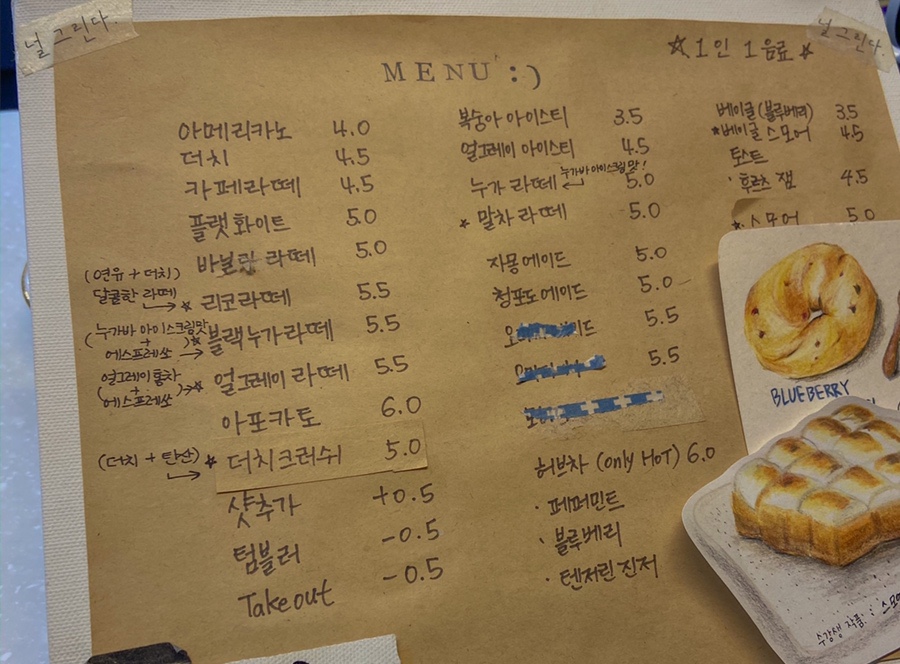 널 그린다.
널 그린다.
☆1인 1음료☆
MENU :)
아메리카노 4.0
더치 4.5
카페라떼 4.5
플랫화이트 5.0
바닐라 라떼 5.0
(연유 + 더치)
달콤한 라떼
리코라떼 5.5
(누가바 아이스크림맛
+
에스프레쏘)
블랙누가라떼 5.5
얼그레이 홍차
(+
에스프레쏘)
얼그레이 라떼 5.5
아포카토 6.0
(더치 + 탄산)
더치크러쉬 5.0
샷추가 +0.5
텀블러 -0.5
Takeout -0.5
복숭아 아이스티 3.5
얼그레이 아이스티 4.5
누가바 아이스크림 맛!
누가 라떼 5.0
말차 라떼 5.0
자몽에이드 5.0
청포도에이드 5.0
5.5
5.5
허브차 (only HOT) 6.0
· 페퍼민트
· 블루베리
· 텐저린 진저
베이글(블루베리) 3.5
베이글 스모어 4.5
토스트
· 후르츠 잼 4.5
스모어 5.0
BLUEBERRY
수강생 작품: